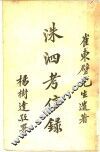 崔東壁先生遺著
洙泗考信錄
楊樹達題